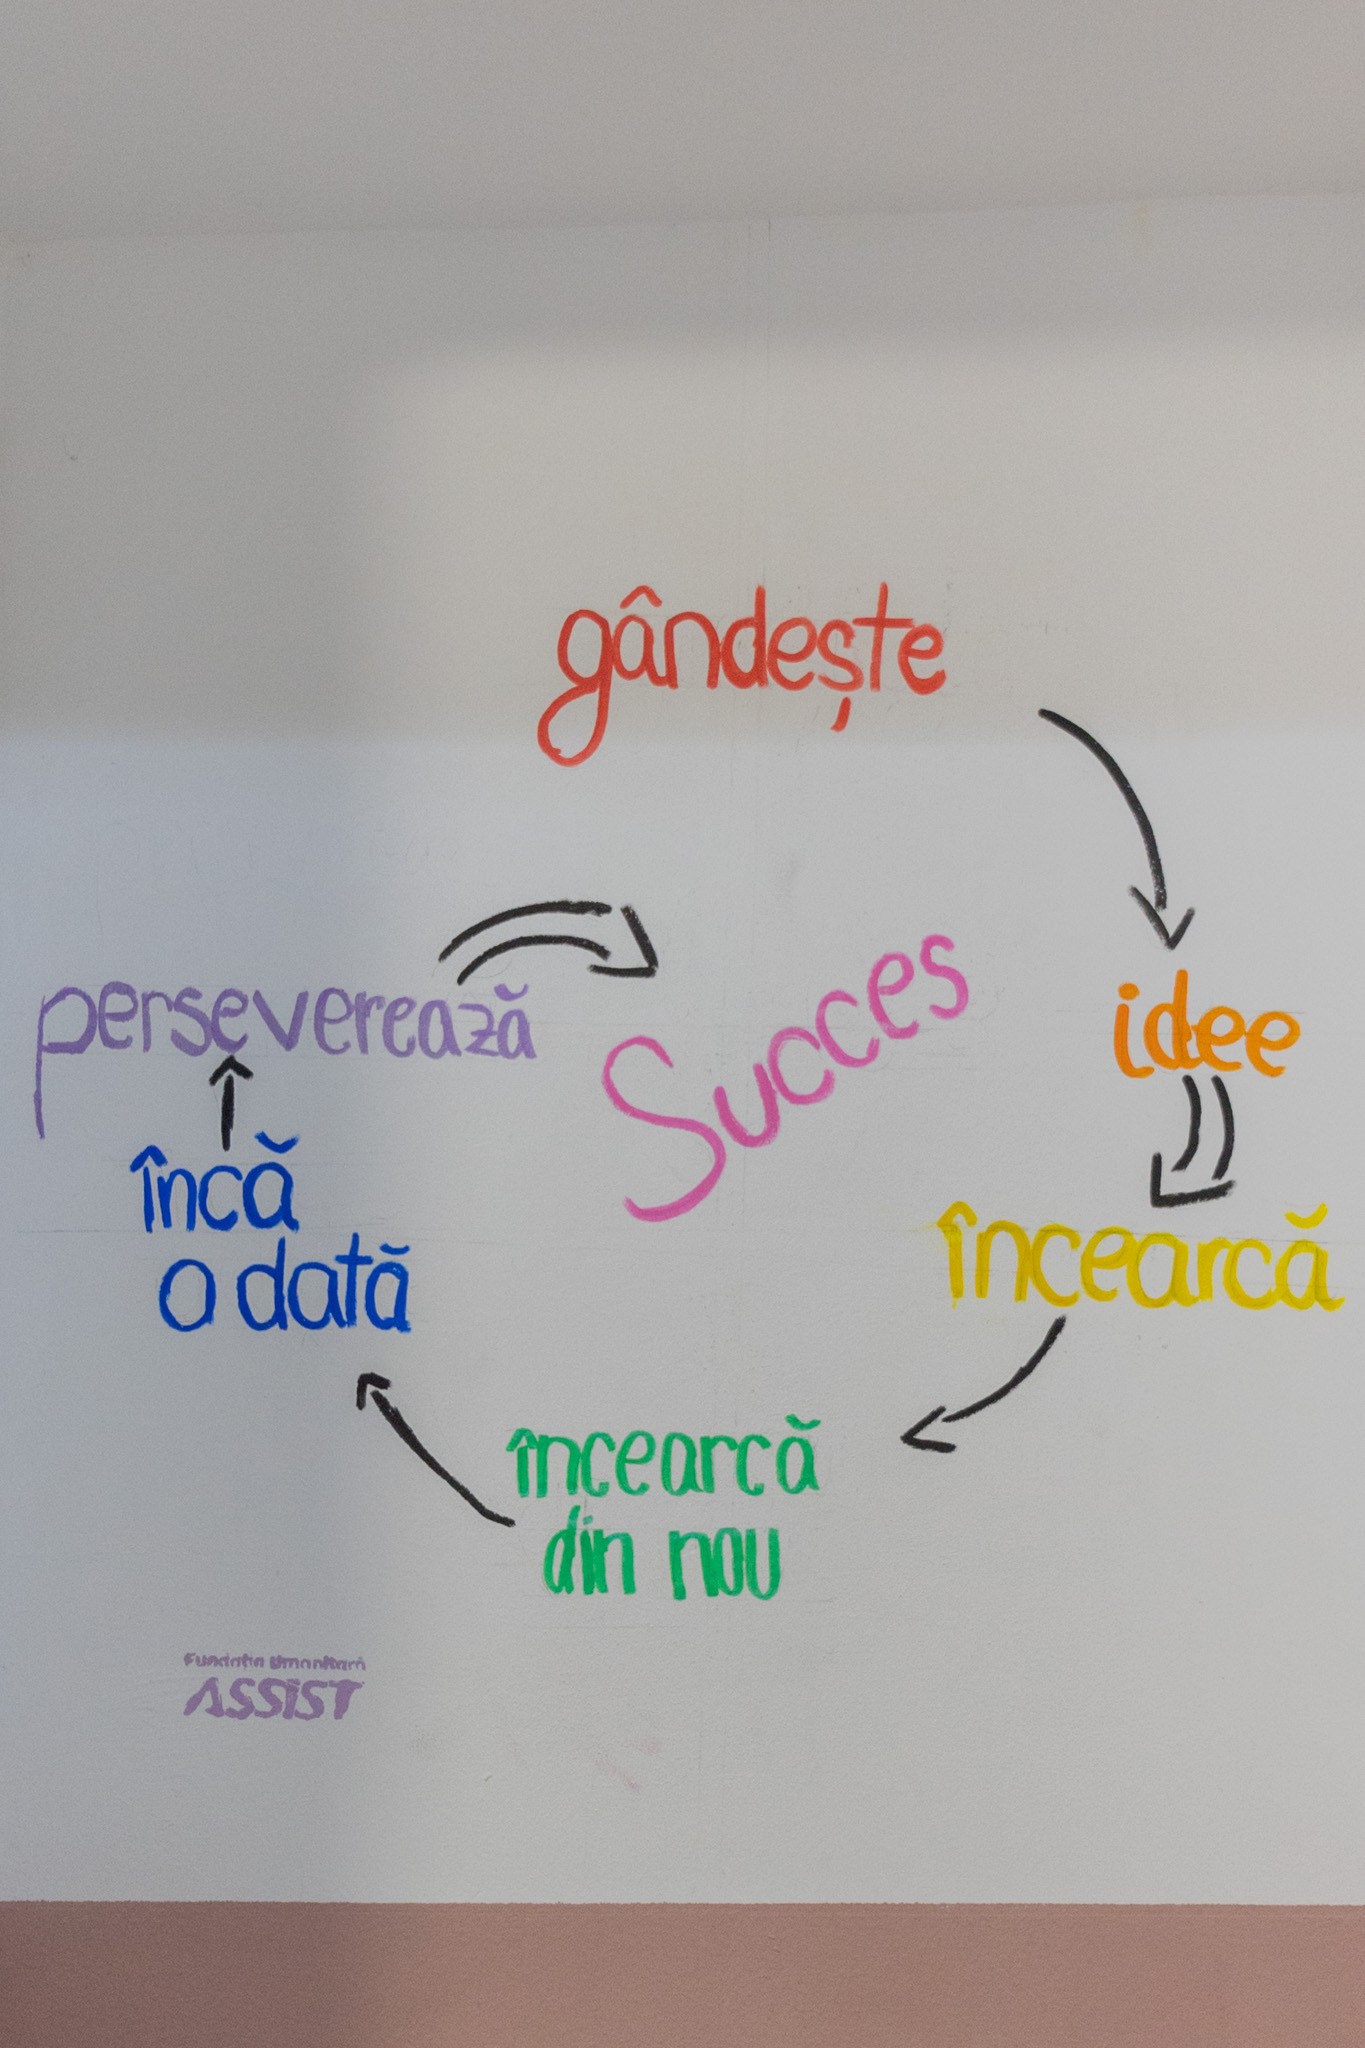 gândește
idee
încearcă
încearcă
din nou
încă
o dată
perseverează
Succes
Fundația Umanitară
ASSIST